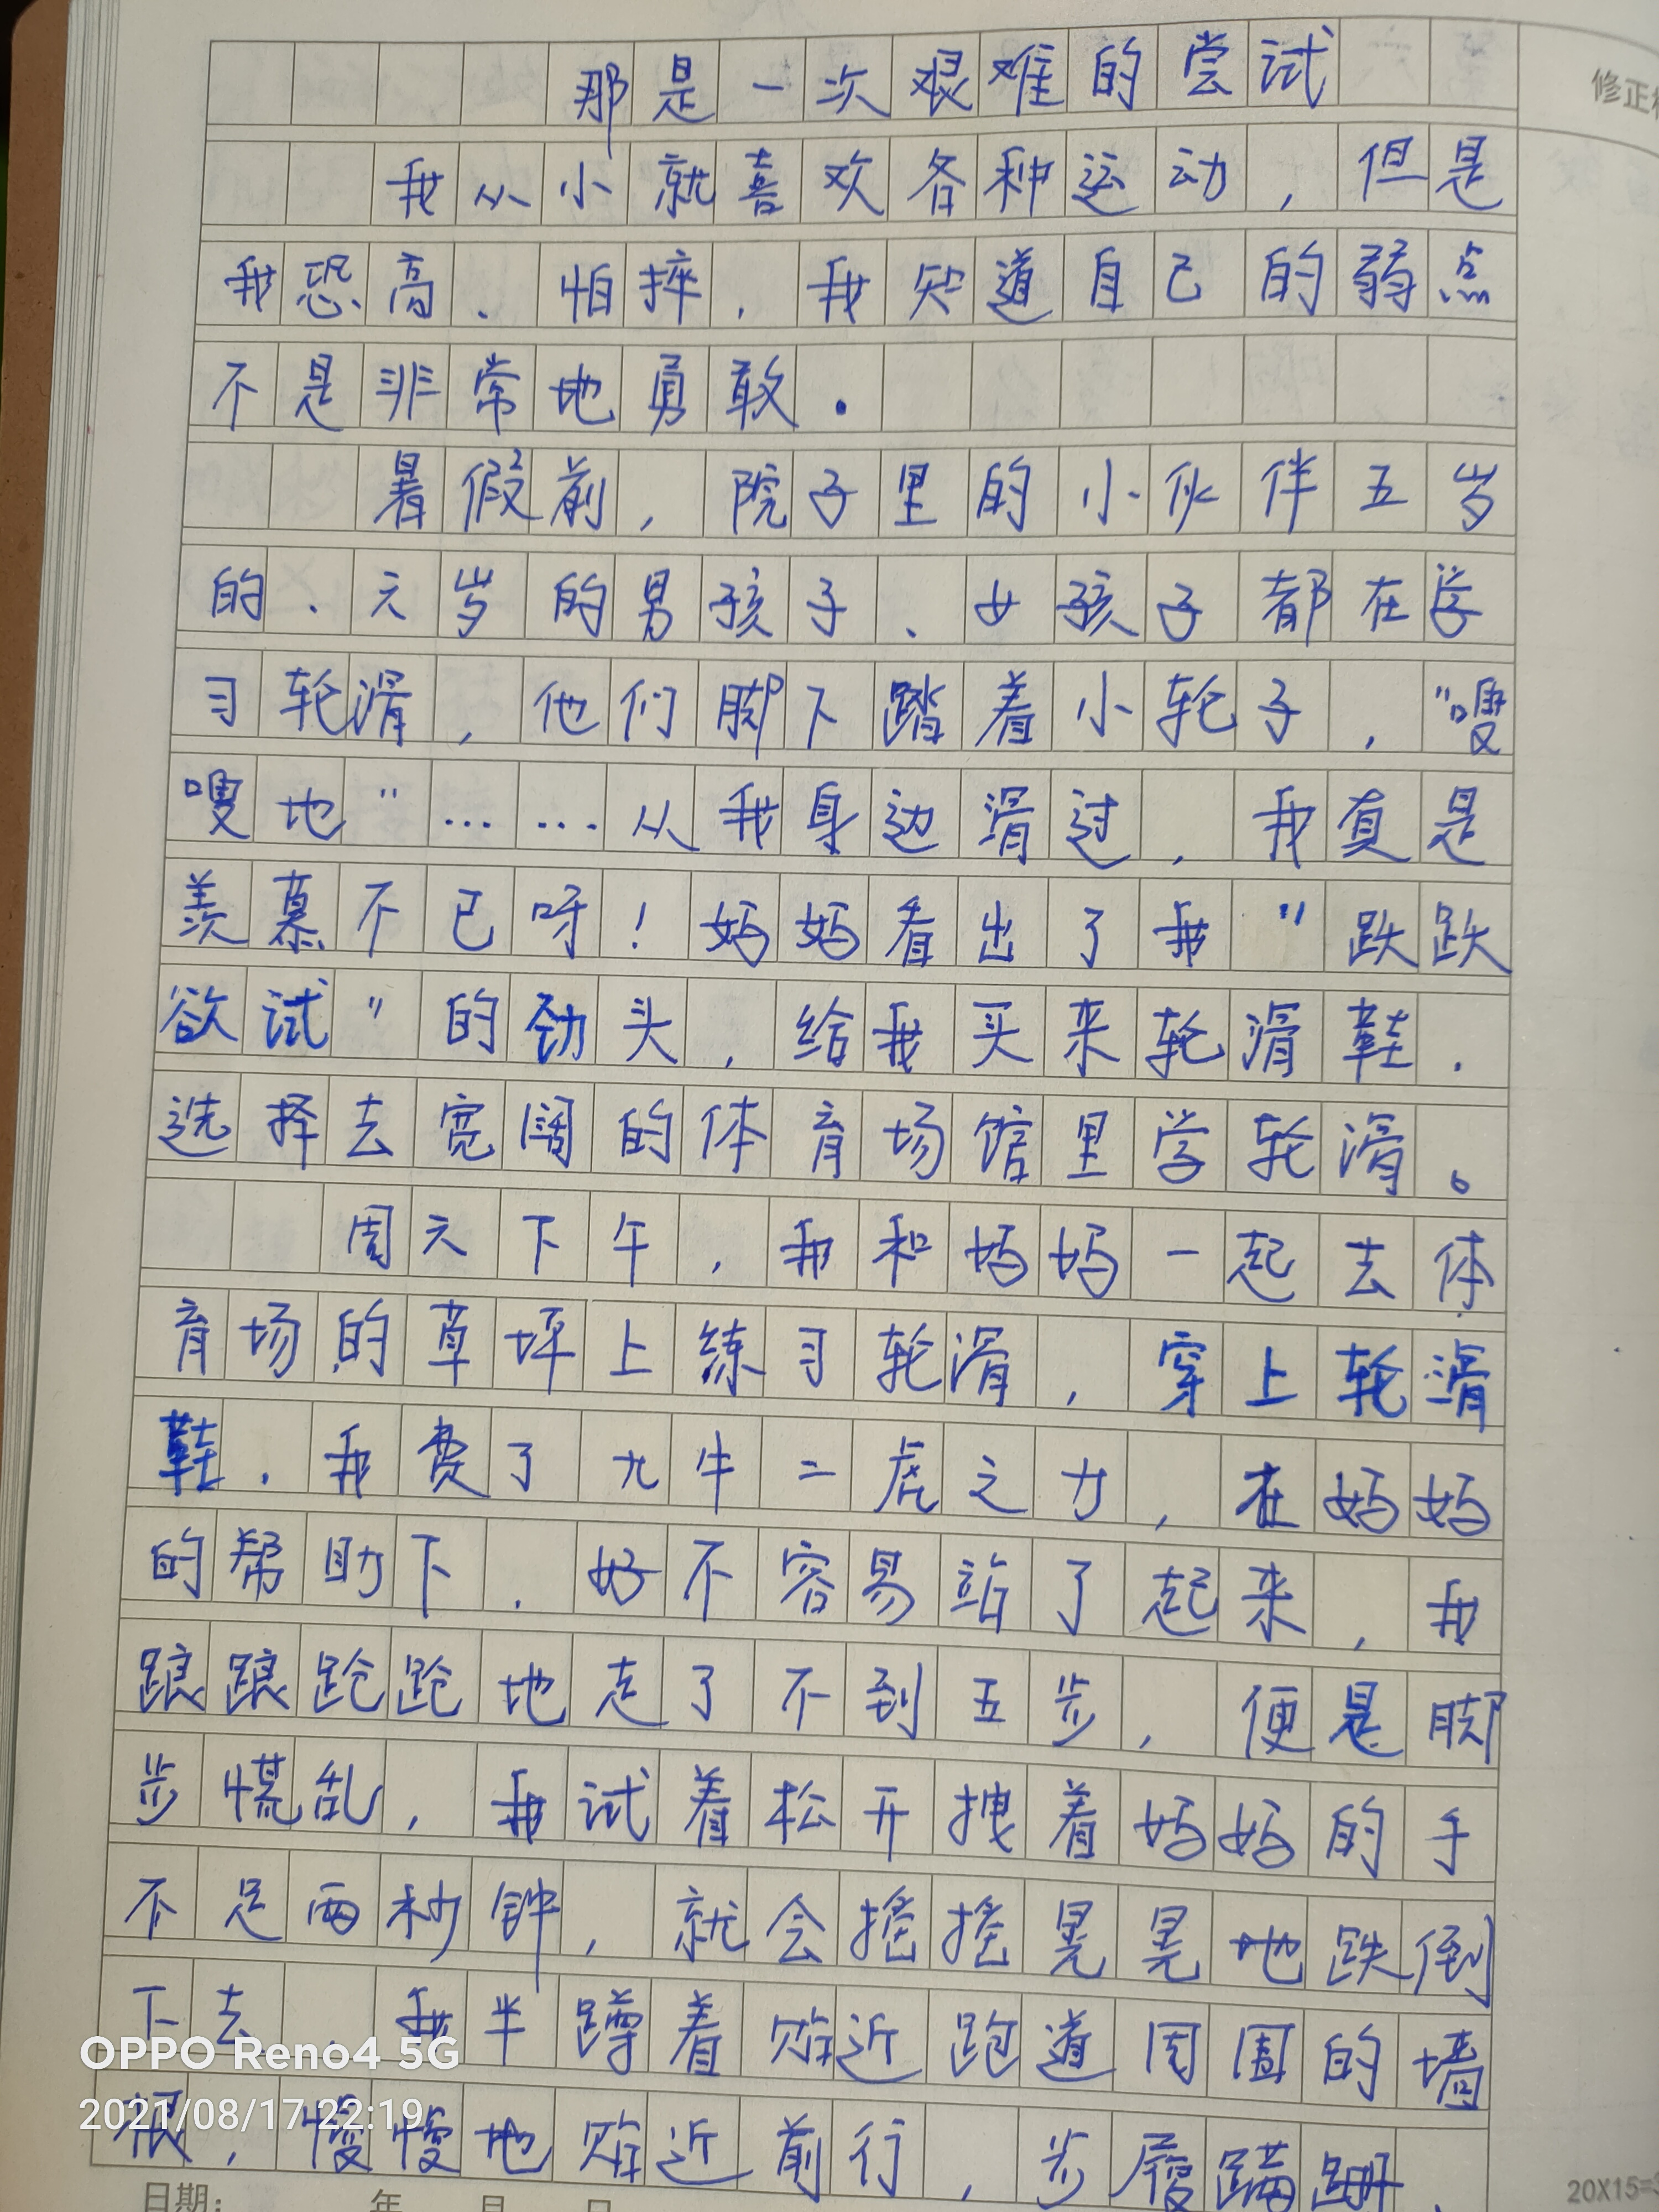 修正
那是一次艰难的尝试
我从小就喜欢各种运动，但是
我恐高、怕摔，我知道自己的弱点
不是非常地勇敢。
暑假前，院子里的小伙伴五岁
的、六岁的男孩子、女孩子都在学
习轮滑，他们脚下踏着小轮子，"嗖
嗖地"……从我身边滑过，我真是
羡慕不已呀！妈妈看出了我"跌跌
欲试"的劲头，给我买来轮滑鞋.
选择去宽阔的体育场馆里学轮滑。
周六下午，我和妈妈一起去体
育场的草坪上练习轮滑，穿上轮滑
鞋.我费了九牛二虎之力，在妈妈
的帮助下.好不容易站了起来，我
踉踉跄跄地走了不到五步，便是脚
步慌乱，我试着松开拽着妈妈的手
不足两秒钟，就会摇摇晃晃地跌倒
下去.我半蹲着贴近跑道周围的墙
根，慢慢地贴近前行，步履蹒跚.
OPPO Reno4 5G
2021/08/17 22:19
日期: 年 月 日
20X15=